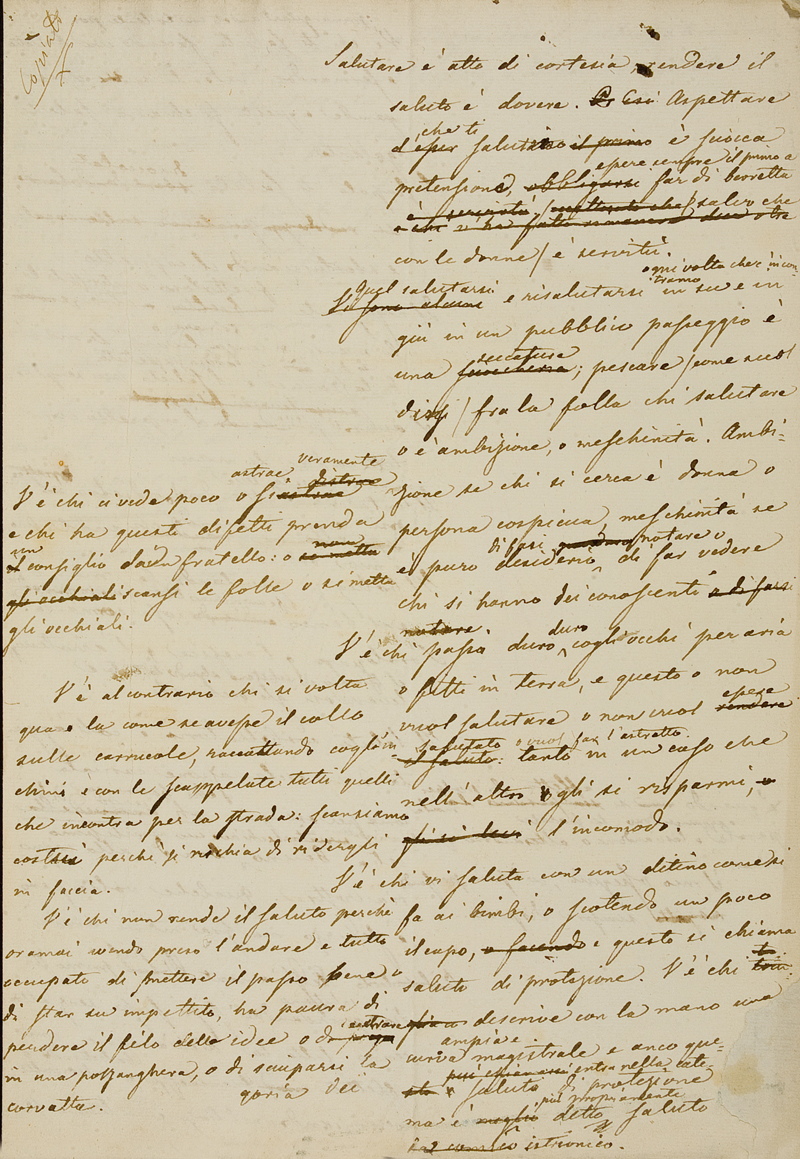 Copiato
Salutare è atto di cortesia, rendere il
saluto è dovere. Aspettare
che ti
salutino il primo è sciocca
essere sempre il primo a
pretensione, obbligarsi far di berretta
è servitù / salvo che
con le donne / è servitù.
ogni volta che c'incon-
Quel salutarsi
tramo
Vi sono alcuni e risalutarsi in su e in
giù in un pubblico passeggio è
seccatura
una ; pescare / come suol
dirsi / fra la folla chi salutare
o è ambizione, o meschinità. Ambi-
zione se chi si cerca è donna o
persona cospicua, meschinità se
di farsi notare o
è puro desiderio, di far vedere
chi si hanno dei conoscenti o di farsi
notare
duro
V'è chi passa duro cogli occhi per aria
o fitti in terra, e questo o non
essere
vuol salutare o non vuol rendere
salutato o vuol far l'astratto
il saluto: tanto in un caso che
nell'altro gli si risparmi, o
l'incomodo.
V'è chi vi saluta con un ditino come si
fa ai bimbi, o scotendo un poco
il capo, o facendo e questo si chiama
saluto di protezione. V'è chi
descrive con la mano una
ampia e
curva magistrale e anco que-
può chiamarsi entra nella cate-
sto saluto di protezione
goria dei
più propriamente
ma è meglio detto saluto
istrionico.
astrae veramente
V'è chi ci vede poco o si distrae
e chi ha questi difetti prenda
un non
il consiglio da un fratello: o si metta
gli occhiali scansi le folle o si metta
gli occhiali.
V'è al contrario chi si volta
qua e là come se avesse il collo
sulle carrucole, raccattando cogl'in-
chini e con le scappellate tutti quelli
che incontra per la strada: scansiamo
costui perchè si rischia di ridergli
in faccia.
V'è chi non rende il saluto perchè
oramai avendo preso l'andare e tutto
occupato di smettere il passo bene o
di star su impettito, ha paura di
perdere il filo delle idee o di entrare
in una pozzanghera, o di sciuparsi la
corvatta.